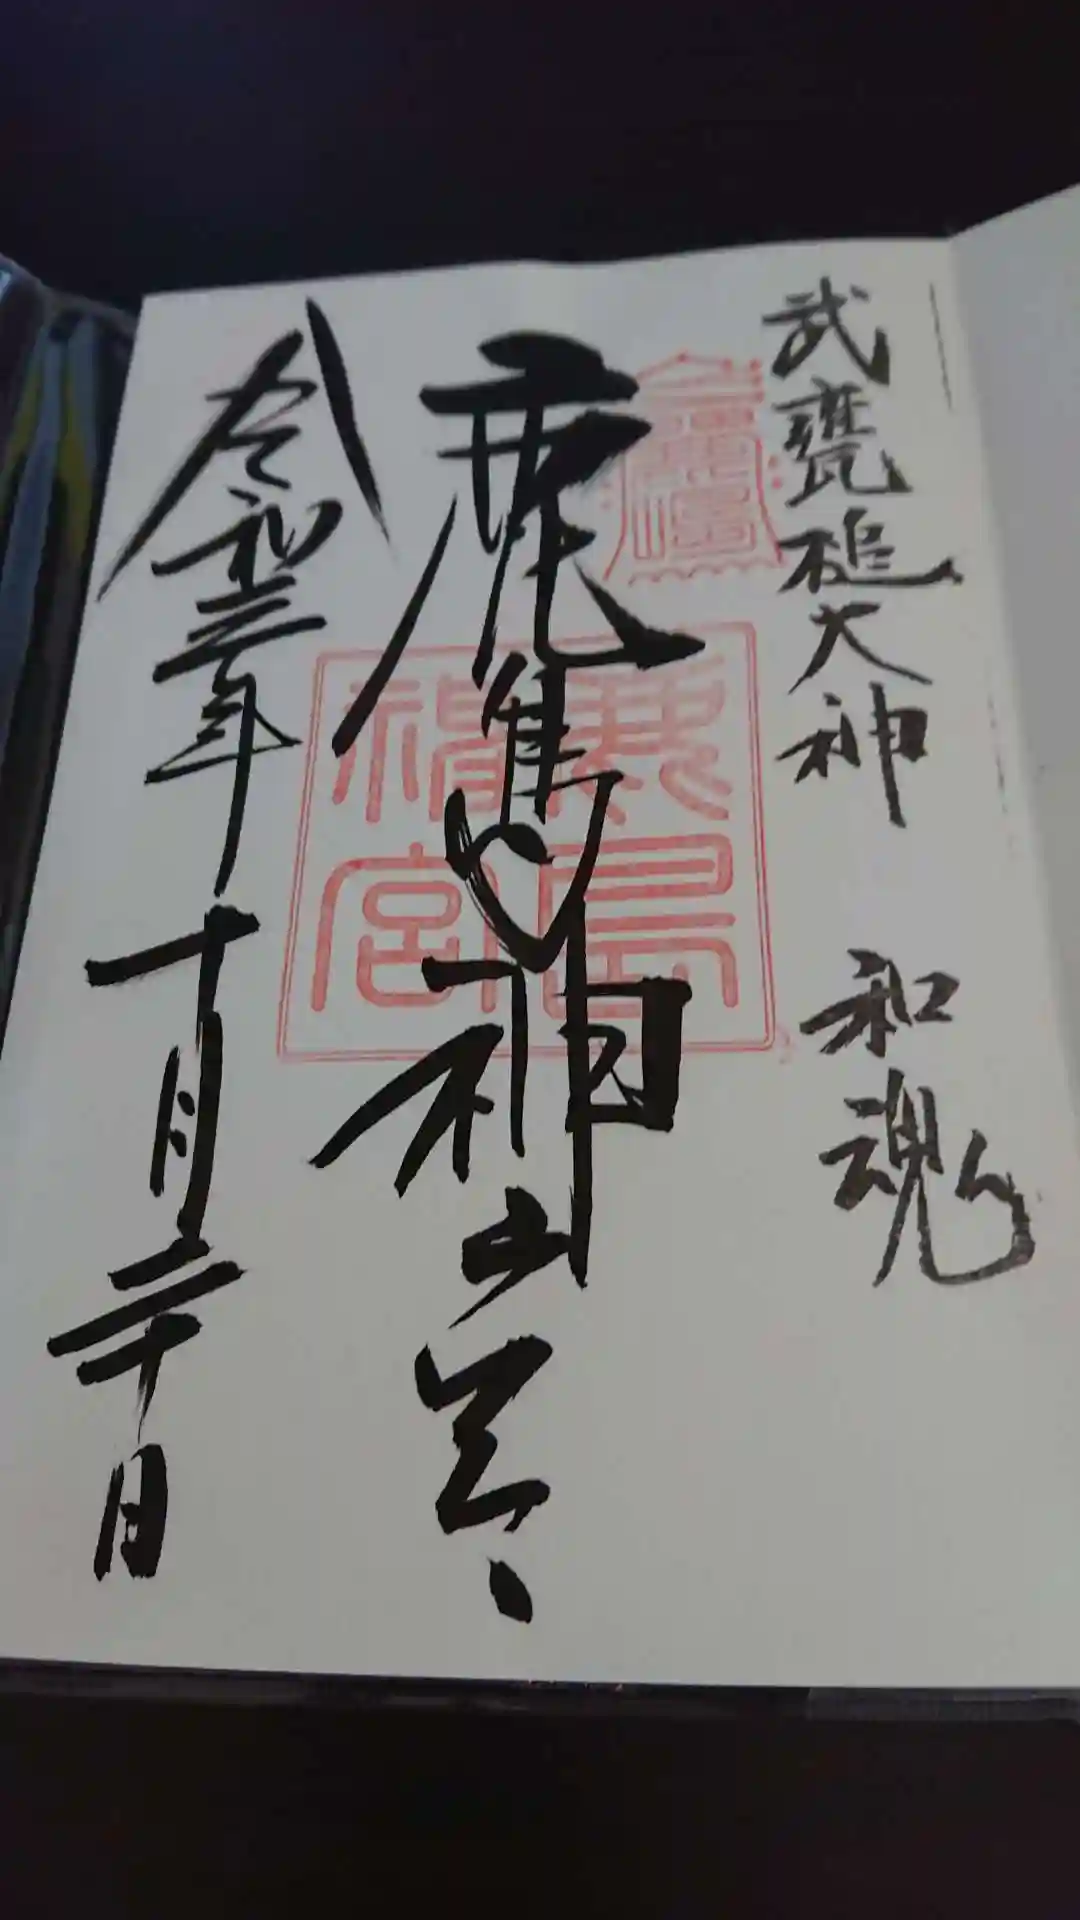 武甕槌大神 和魂
鹿島神宮
鹿島神宮
令和三年十月二十日